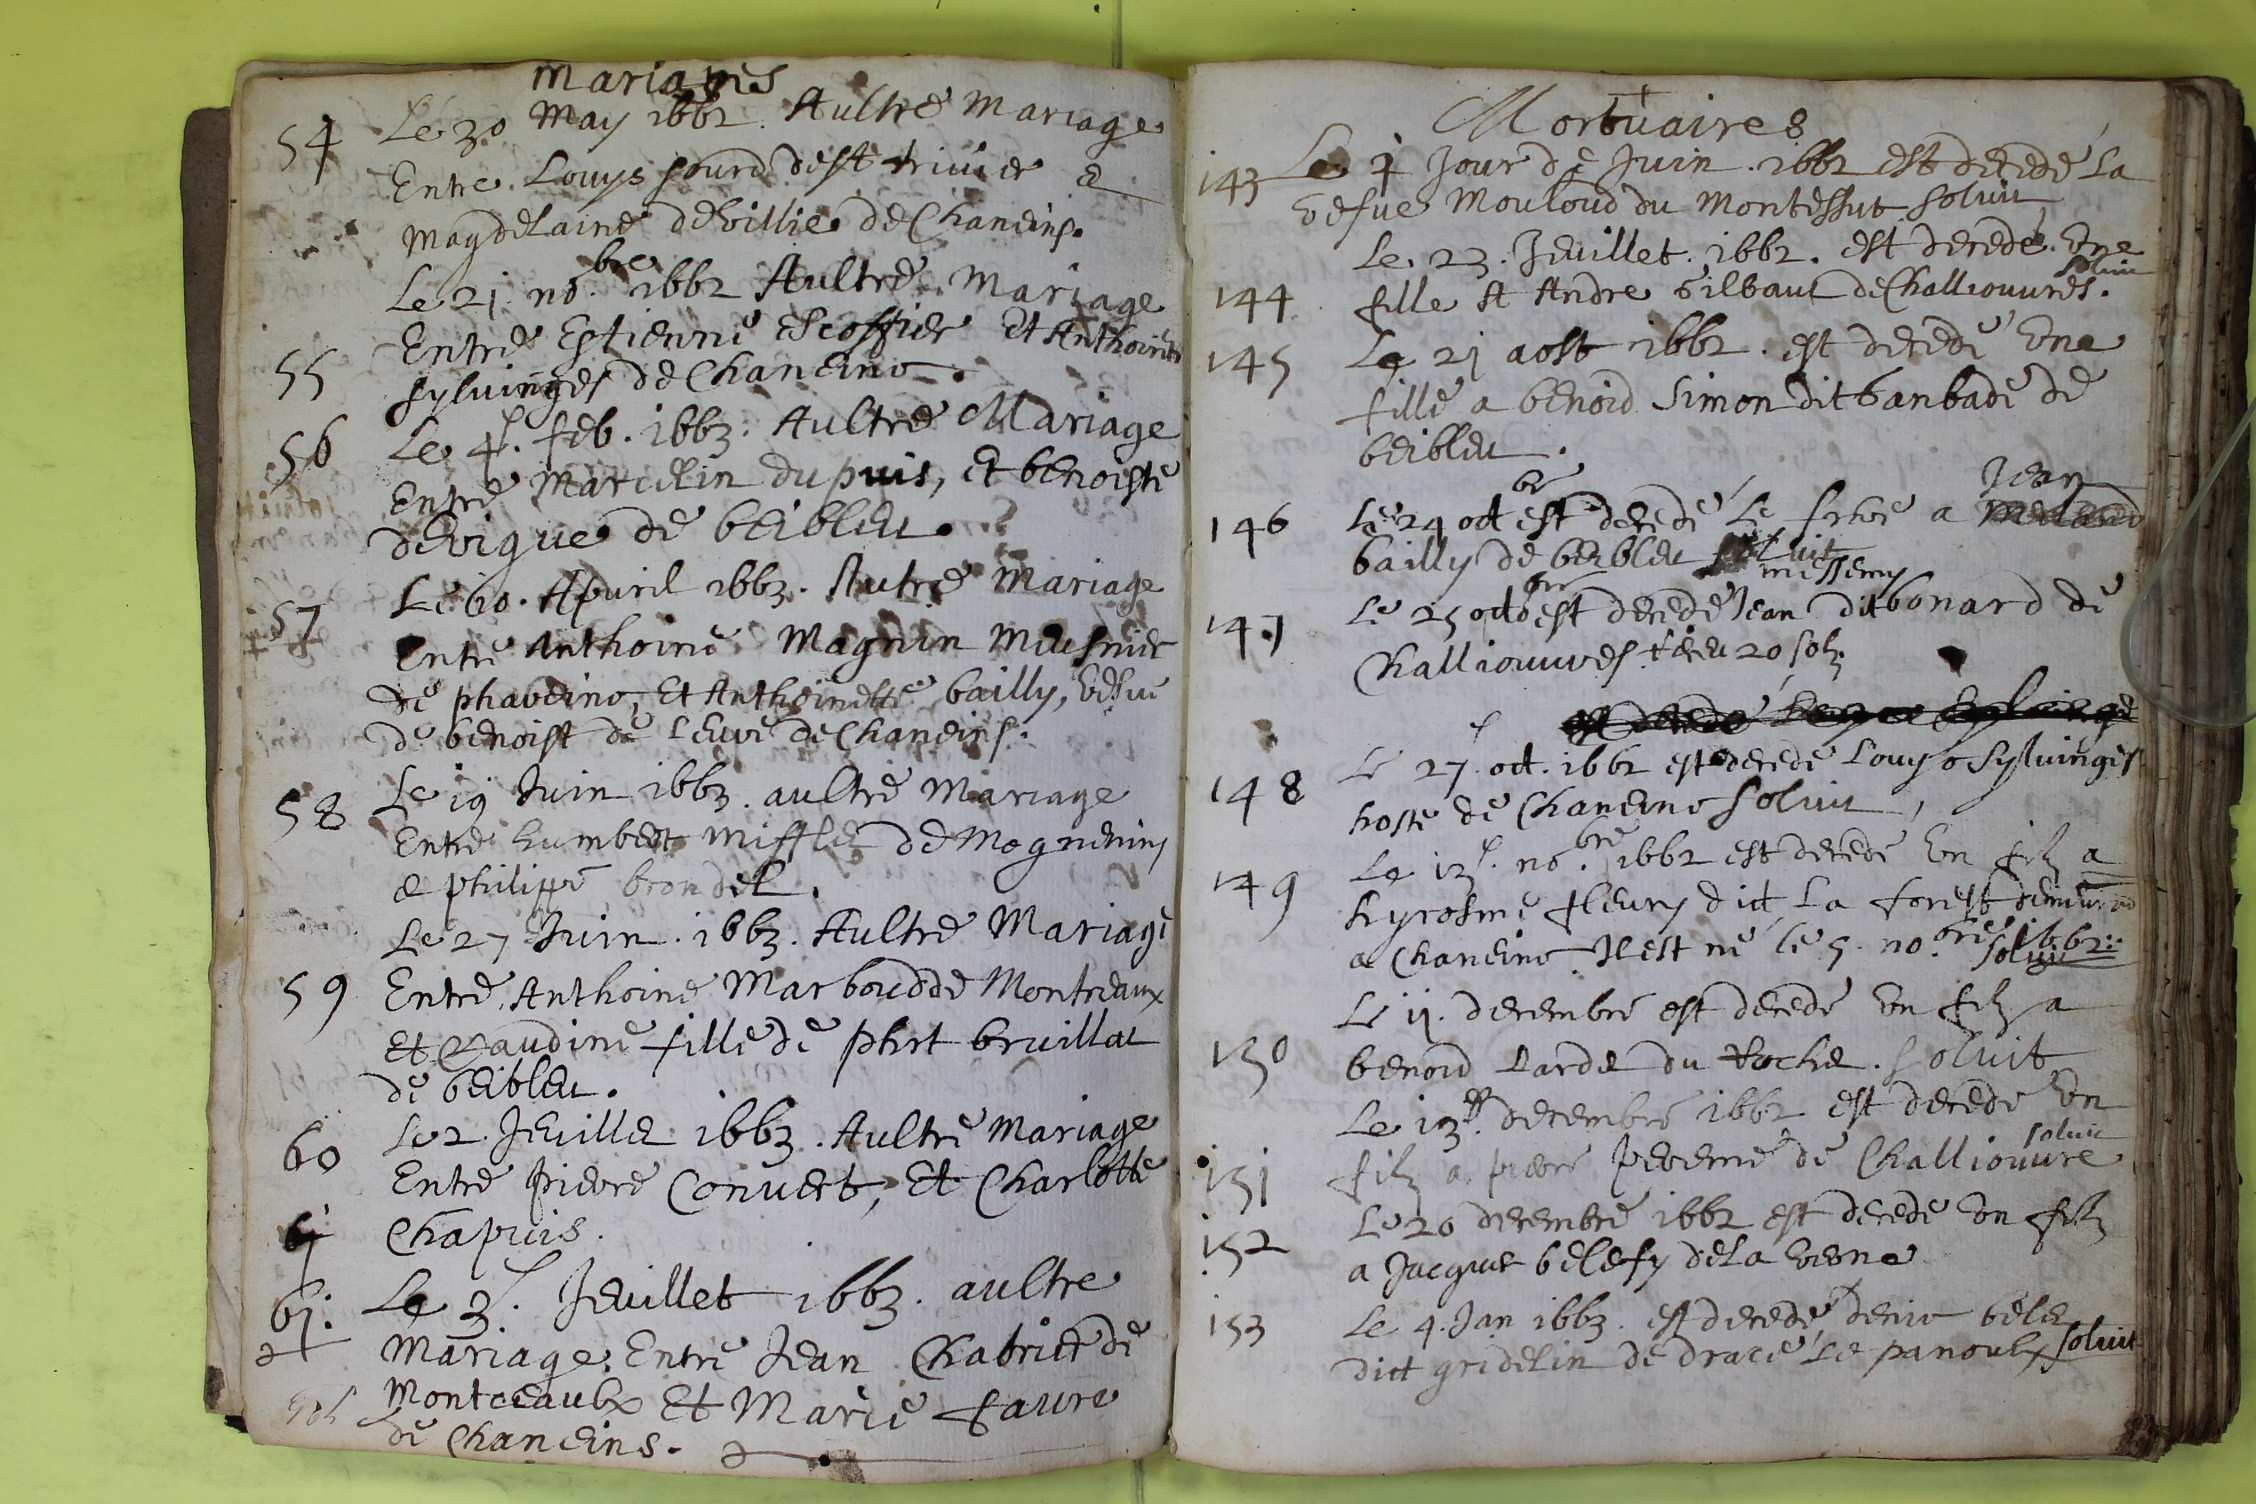 Mariages
54 Le 30 May 1662. Aultre Mariage
Entre Louys sourd dest trivier &
Magdelaine devillie de Chaneins.
Le 21 no.bre 1662 Aultre Mariage
Entre Estienne Escoffier Et Anthoinete
55 sylvinges de Chaneins.
56 Le 4. feb. 1663. Aultre Mariage
Entre Marcelin dupuis, et benoiste
devigue de beibleu.
57 Le 10. Apvril 1663. Autre Mariage
Entre Anthoine Magnin Meusnier
de phaveins, Et Anthoinette bailly, vefue
de benoist de Leuve de Chaneins.
58 Le 19 Juin 1663. aultre Mariage
Entre humbert Mifflet de Mogneins
& philippe brondel.
Le 27 Juin. 1663. Aultre Mariage
59 Entre Anthoine Marboud de Montceaux
Et Claudine fille de phrt bruillat
de beibleu.
60 Le 2. Jeuillet 1663. Aultre Mariage
Entre Pierre Convert, Et Charlotte
61 Chapuis.
61. Le 3. Jeuillet 1663. aultre
Mariage. Entre Jean Chabrier de
Montceaulx Et Marie faure
de Chaneins.
Mortuaires
143 Le 4 Jour de Juin. 1662 est decedé La
vefue Mouloud du Montessut soluit
Le 23. Jeuillet. 1662. est decedé. Une
144 fille A Andre Gilbaut de Challiouvres. soluit
145 Le 21 aost 1662. est decedé Une
fille a benoid Simon dit banbade de
beibleu.
Jean
146 Le 24 octbr est decedé Le a
bailly de beibleu soluit
messemy
147 Le 25 octobr est decedé Jean dit bonard de
Challiouvres. receu 20 solz
est decedé
148 Le 27. oct. 1662 est decedé Louys Sylvinges
hoste de Chaneins soluit
Le 13. no.bre 1662 est decedé Un filz a
149 hyrosme fleury dict La forest demeurant
a Chaneins Il est né le 5. no.bre 1662.
soluit
Le 11. decembre est decedé Un filz a
150 benoid Larde du Roche. soluit
Le 13. decembre 1662 est decedé Un
151 filz a pierre de Challiouvre soluit
152 Le 20 decembre 1662 est decedé Un filz
a Jacques de La verne
153 Le 4. Jan 1663. est decedé denis
dict gridelin de drace Le panoulx soluit